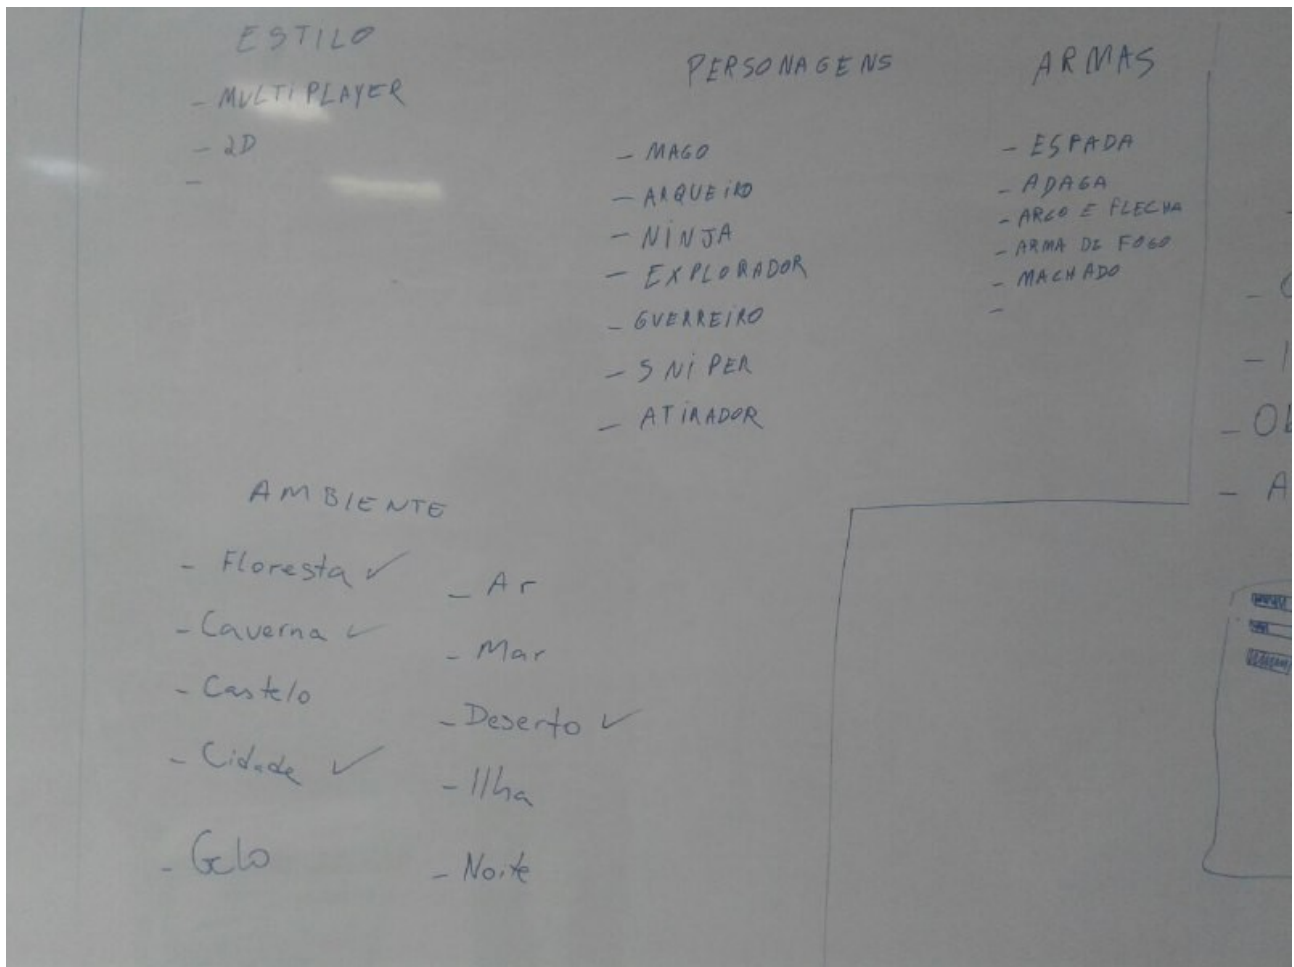 ESTILO
- MULTIPLAYER
- 2D
-
PERSONAGENS
- MAGO
- ARQUEIRO
- NINJA
- EXPLORADOR
- GUERREIRO
- SNIPER
- ATIRADOR
ARMAS
- ESPADA
- ADAGA
- ARCO E FLECHA
- ARMA DE FOGO
- MACHADO
-
AMBIENTE
- Floresta ✓
- Caverna ✓
- Castelo
- Cidade ✓
- Gelo
- Ar
- Mar
- Deserto ✓
- Ilha
- Noite